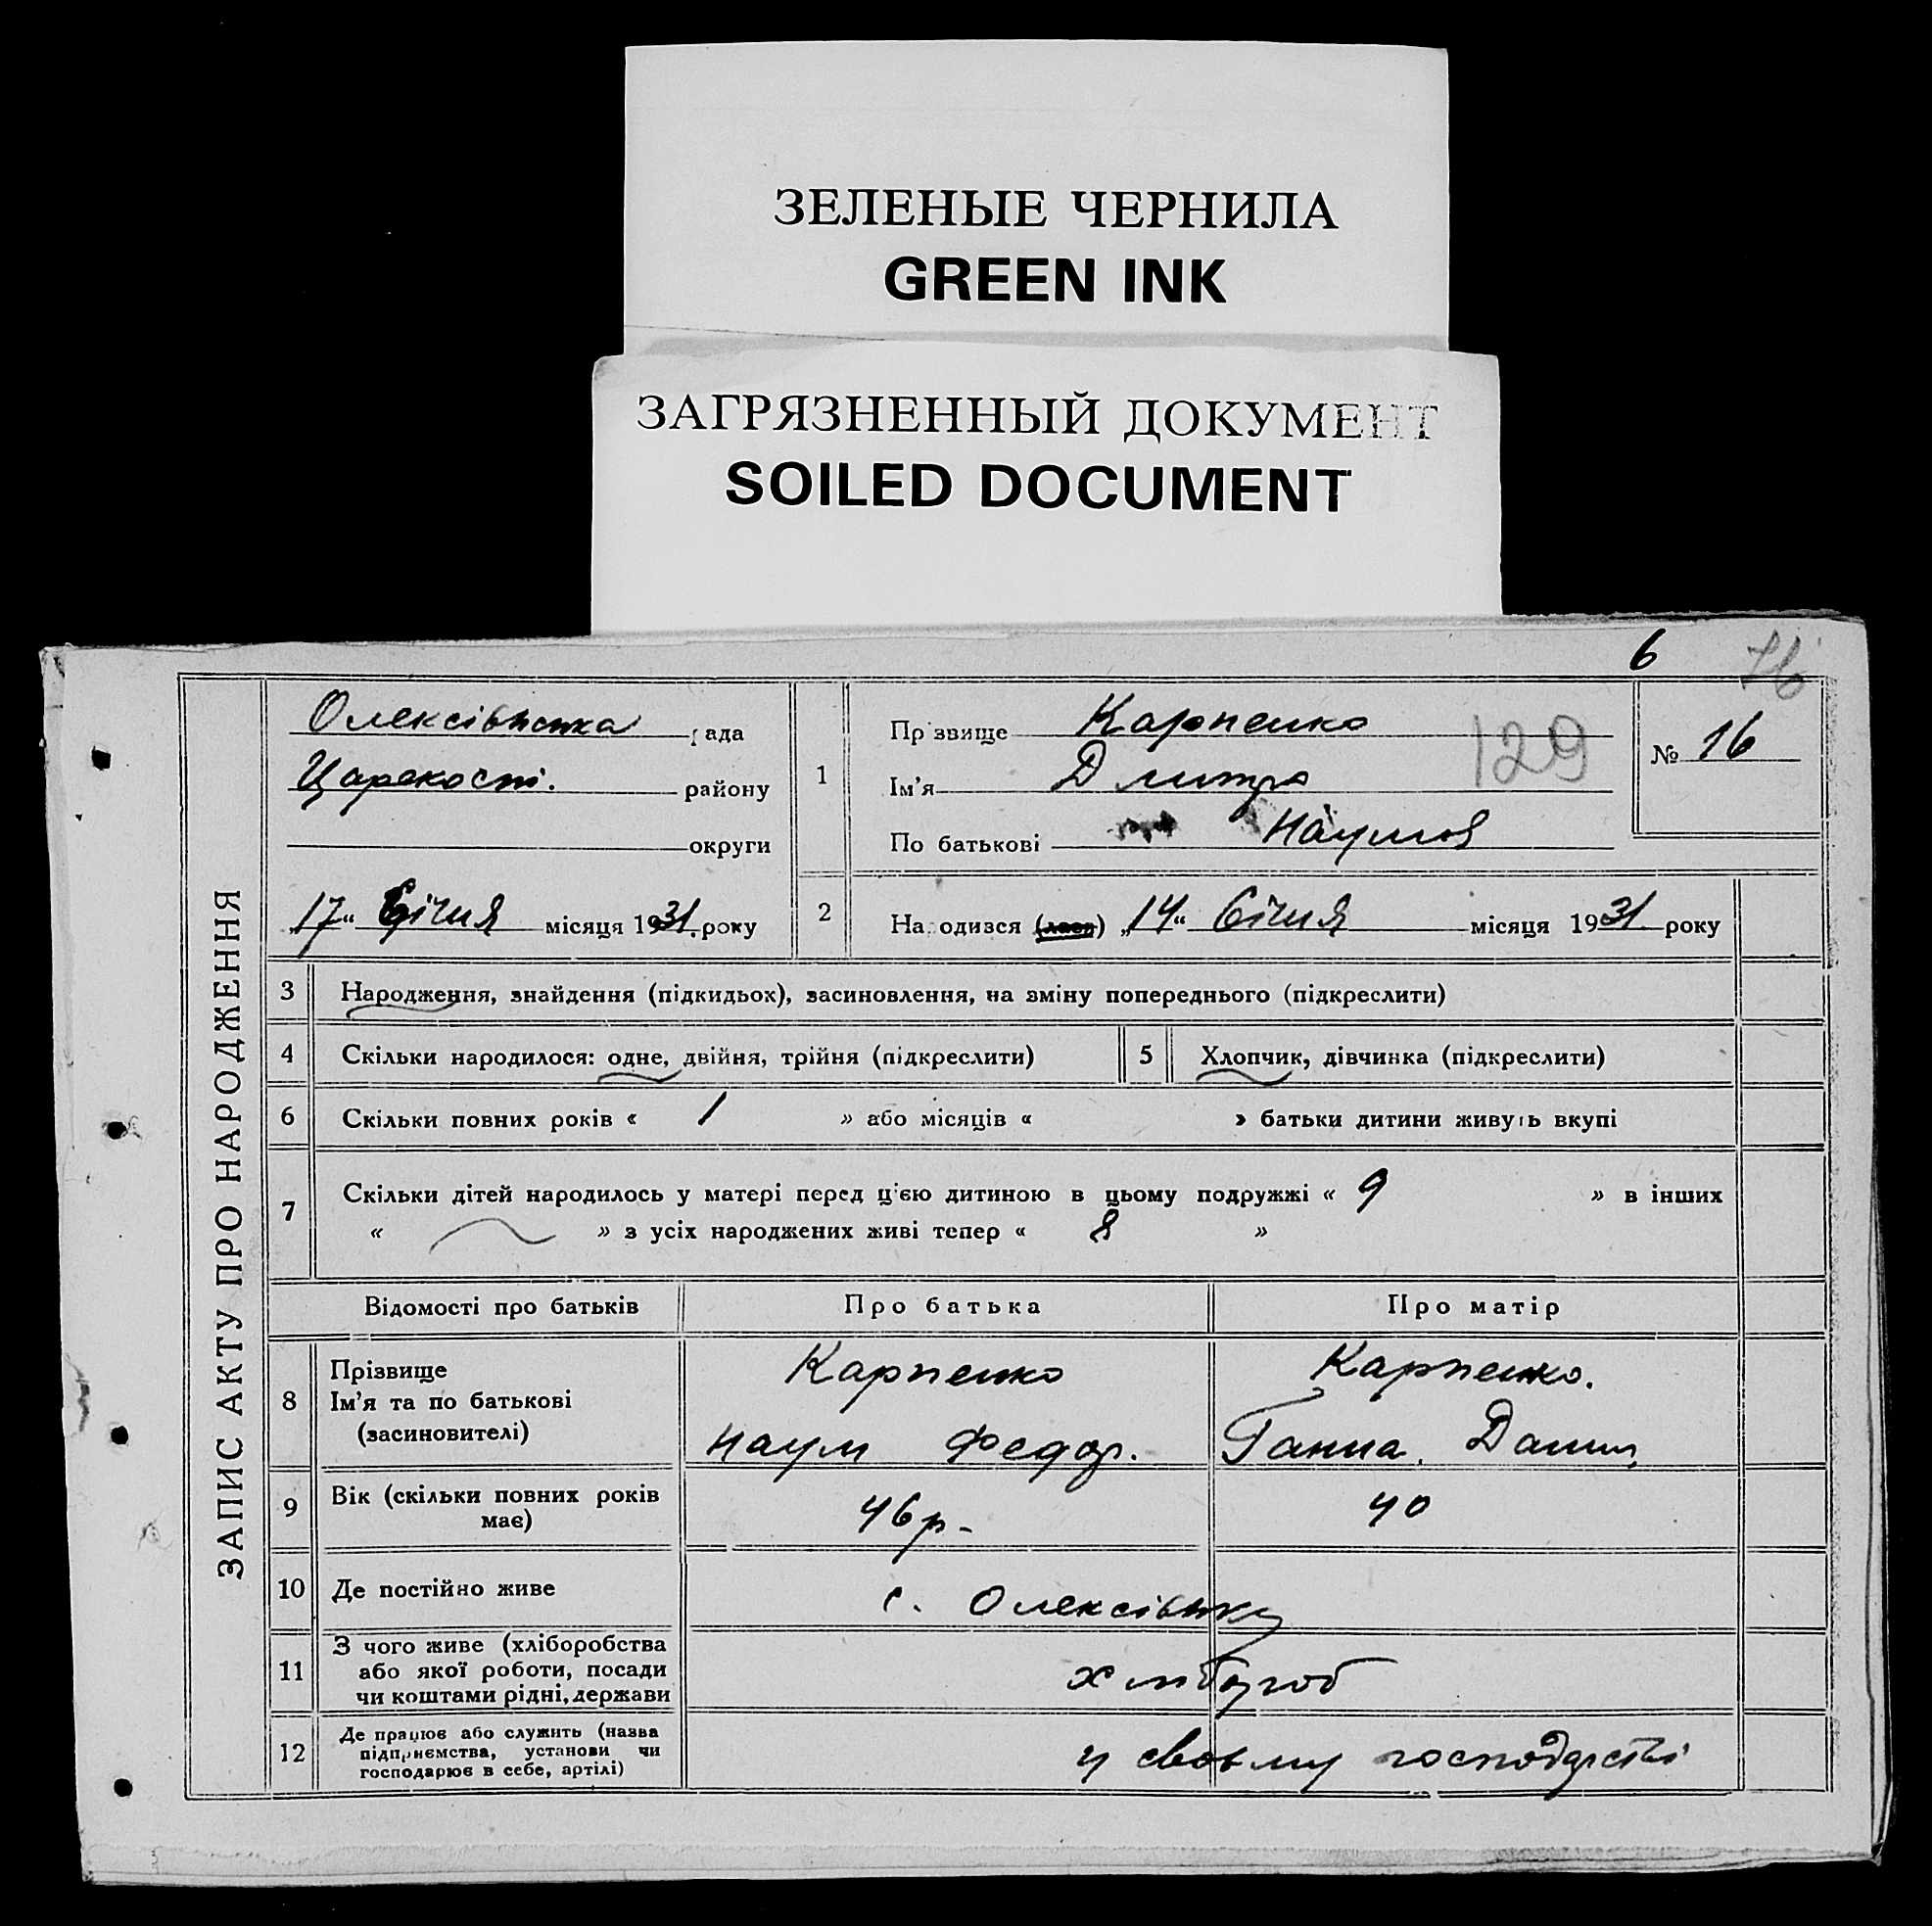 ЗЕЛЕНЫЕ ЧЕРНИЛА
GREEN INK
ЗАГРЯЗНЕННЫЙ ДОКУМЕНТ
SOILED DOCUMENT
6
76
ЗАПИС АКТУ ПРО НАРОДЖЕННЯ
Олексівська рада
району
округи
17 Січня місяця 1931 року
1
Прізвище Карпенко
Ім'я Дмитро
По батькові Наумов
129
№ 16
2 На одився (лась) „14“ Січня місяця 1931 року
3 Народження, знайдення (підкидьох), засиновлення, на зміну попереднього (підкреслити)
4 Скільки народилося: одне, двійня, трійня (підкреслити) 5 Хлопчик, дівчинка (підкреслити)
6 Скільки повних років « 1 » або місяців « » батьки дитини живуть вкупі
7 Скільки дітей народилось у матері перед цією дитиною в цьому подружжі « 9 » в інших
« » з усіх народжених живі тепер « 8 »
Відомості про батьків Про батька Про матір
8 Прізвище
Ім'я та по батькові
(засиновителі)
Карпенко
Наум Федор.
Карпенко.
Ганна Данил.
9 Вік (скільки повних років
має)
46 р. 40
10 Де постійно живе с. Олексівка
11 З чого живе (хліборобства
або якої роботи, посади
чи коштами рідні, держави
хлібороб
12 Де працює або служить (назва
підприємства, установи чи
господарює в себе, артілі)
у своєму господарстві